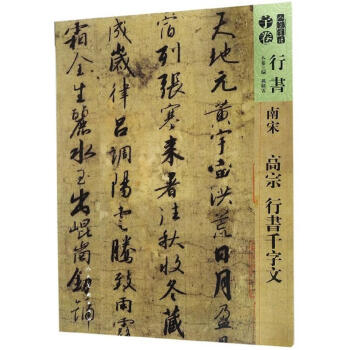 子卷
行書
南宋
高宗 行書千字文
天地元黄宇宙洪荒日月盈
宿列張寒来暑往秋收冬藏
成歲律呂調陽雲騰致雨露
霜金生麗水玉出崐崗